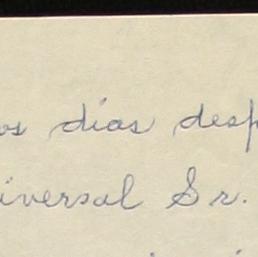 os días desp
iversal Sr.